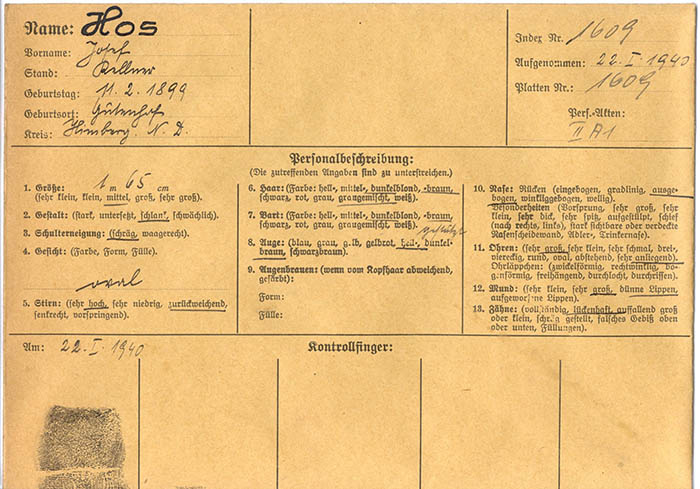 Name: Hos
Vorname: Josef
Stand: Kellner
Geburtstag: 11. 2. 1899
Geburtsort: Gutenhof
Kreis: Himberg. N. D.
Index Nr. 1609
Aufgenommen: 22. I. 1940
Platten Nr.: 1609
Pers.-Akten:
II A1
Personalbeschreibung:
(Die zutreffenden Angaben sind zu unterstreichen.)
1. Größe: 1 m 65 cm
(sehr klein, klein, mittel, groß, sehr groß).
2. Gestalt: (stark, untersetzt, schlank, schwächlich).
3. Schulterneigung: (schräg, waagerecht).
4. Gesicht: (Farbe, Form, Fülle).
oval
5. Stirn: (sehr hoch, sehr niedrig, zurückweichend,
senkrecht, vorspringend).
6. Haar: (Farbe: hell-, mittel-, dunkelblond, -braun,
schwarz, rot, grau, graugemischt, weiß).
7. Bart: (Farbe: hell-, mittel-, dunkelblond, -braun,
schwarz, rot, grau, graugemischt, weiß). gestutzt
8. Auge: (blau, grau, gelb, gelbrot, hell-, dunkel-
braun, schwarzbraun).
9. Augenbrauen: (wenn vom Kopfhaar abweichend,
gefärbt):
Form:
Fülle:
10. Nase: Rücken (eingebogen, gradlinig, ausge-
bogen, winkliggebogen, wellig).
Besonderheiten (Vorsprung, sehr groß, sehr
klein, sehr dick, sehr spitz, aufgestülpt, schief
(nach rechts, links), stark sichtbare oder verdeckte
Nasenscheidewand, Adler-, Trinkernase).
11. Ohren: (sehr groß, sehr klein, sehr schmal, drei-,
viereckig, rund, oval, abstehend, sehr anliegend).
Ohrläppchen: (zwickelförmig, rechtwinklig, bo-
genförmig, freihängend, durchlocht, durchrissen).
12. Mund: (sehr klein, sehr groß, dünne Lippen,
aufgeworfene Lippen).
13. Zähne: (vollständig, lückenhaft, auffallend groß
oder klein, schräg gestellt, falsches Gebiß oben
oder unten, Füllungen).
Am: 22. I. 1940
Kontrollfinger: